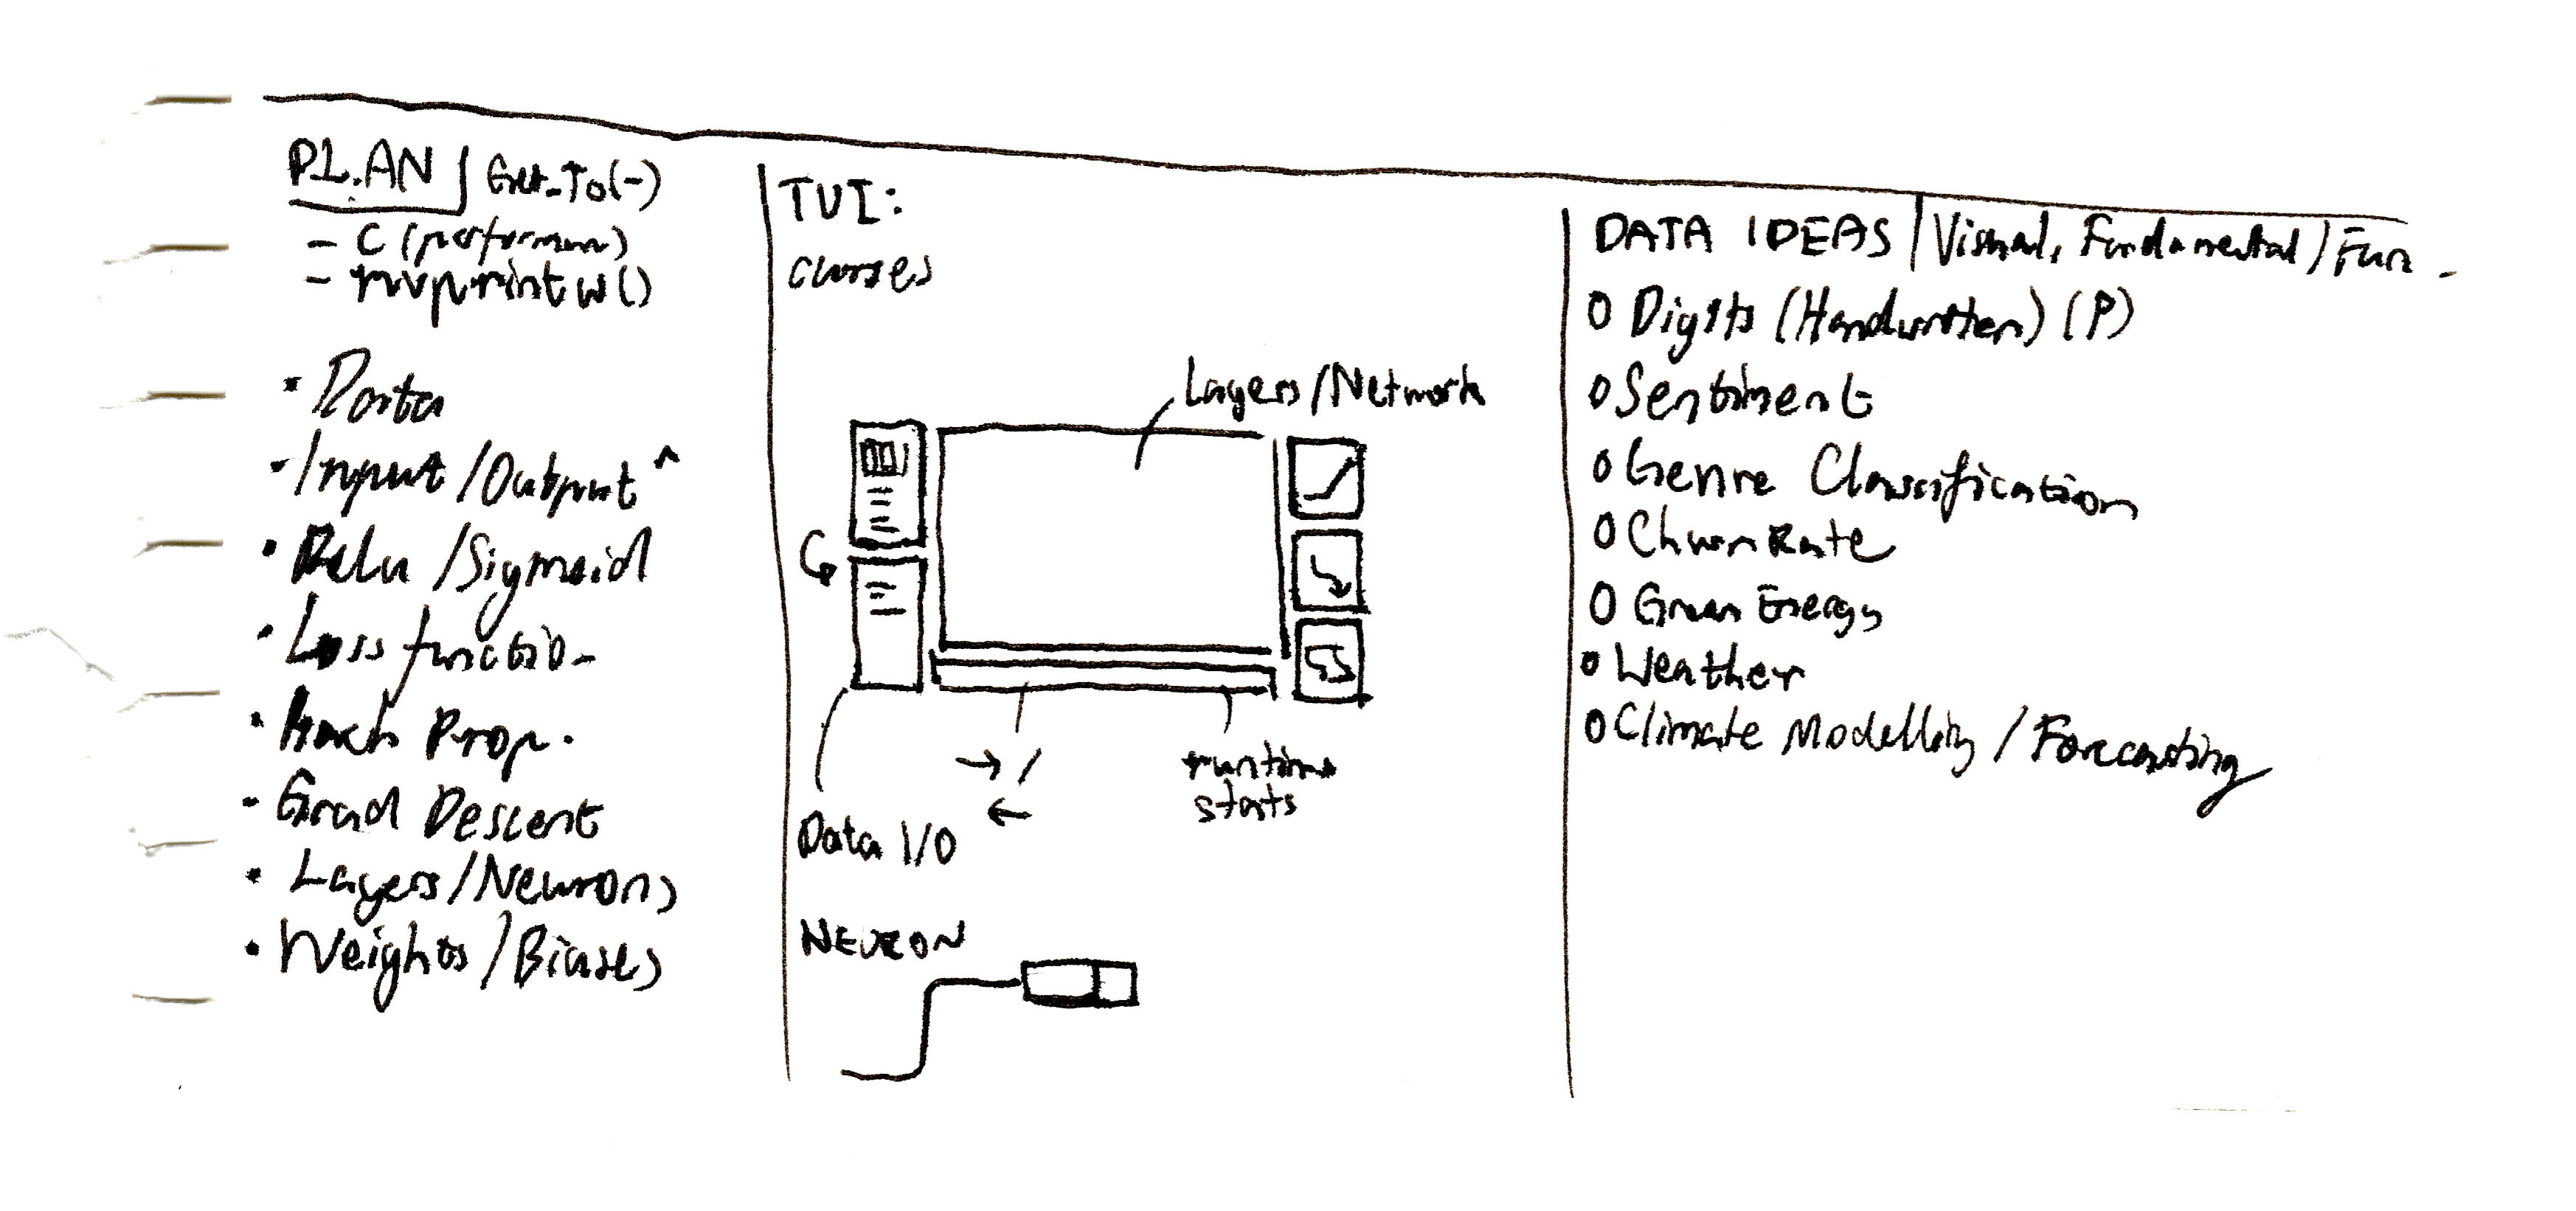 PLAN
- C (performan)
- mvprintw()
• Data
• Input/Output ^
• Relu/Sigmoid
• Loss functio-
• Back Prop.
- Grad Descent
• Layers/Neurons
• Weights/Biases
TUI:
curses
Layers/Network
→ /
←
runtime
stats
Data I/O
NEURON
DATA IDEAS | Visual, Fundamental/Fun -
o Digits (Handwritten) (P)
o Sentiment
o Genre Classification
o Churn Rate
o Green Energy
o Weather
o Climate Modelling / Forecasting